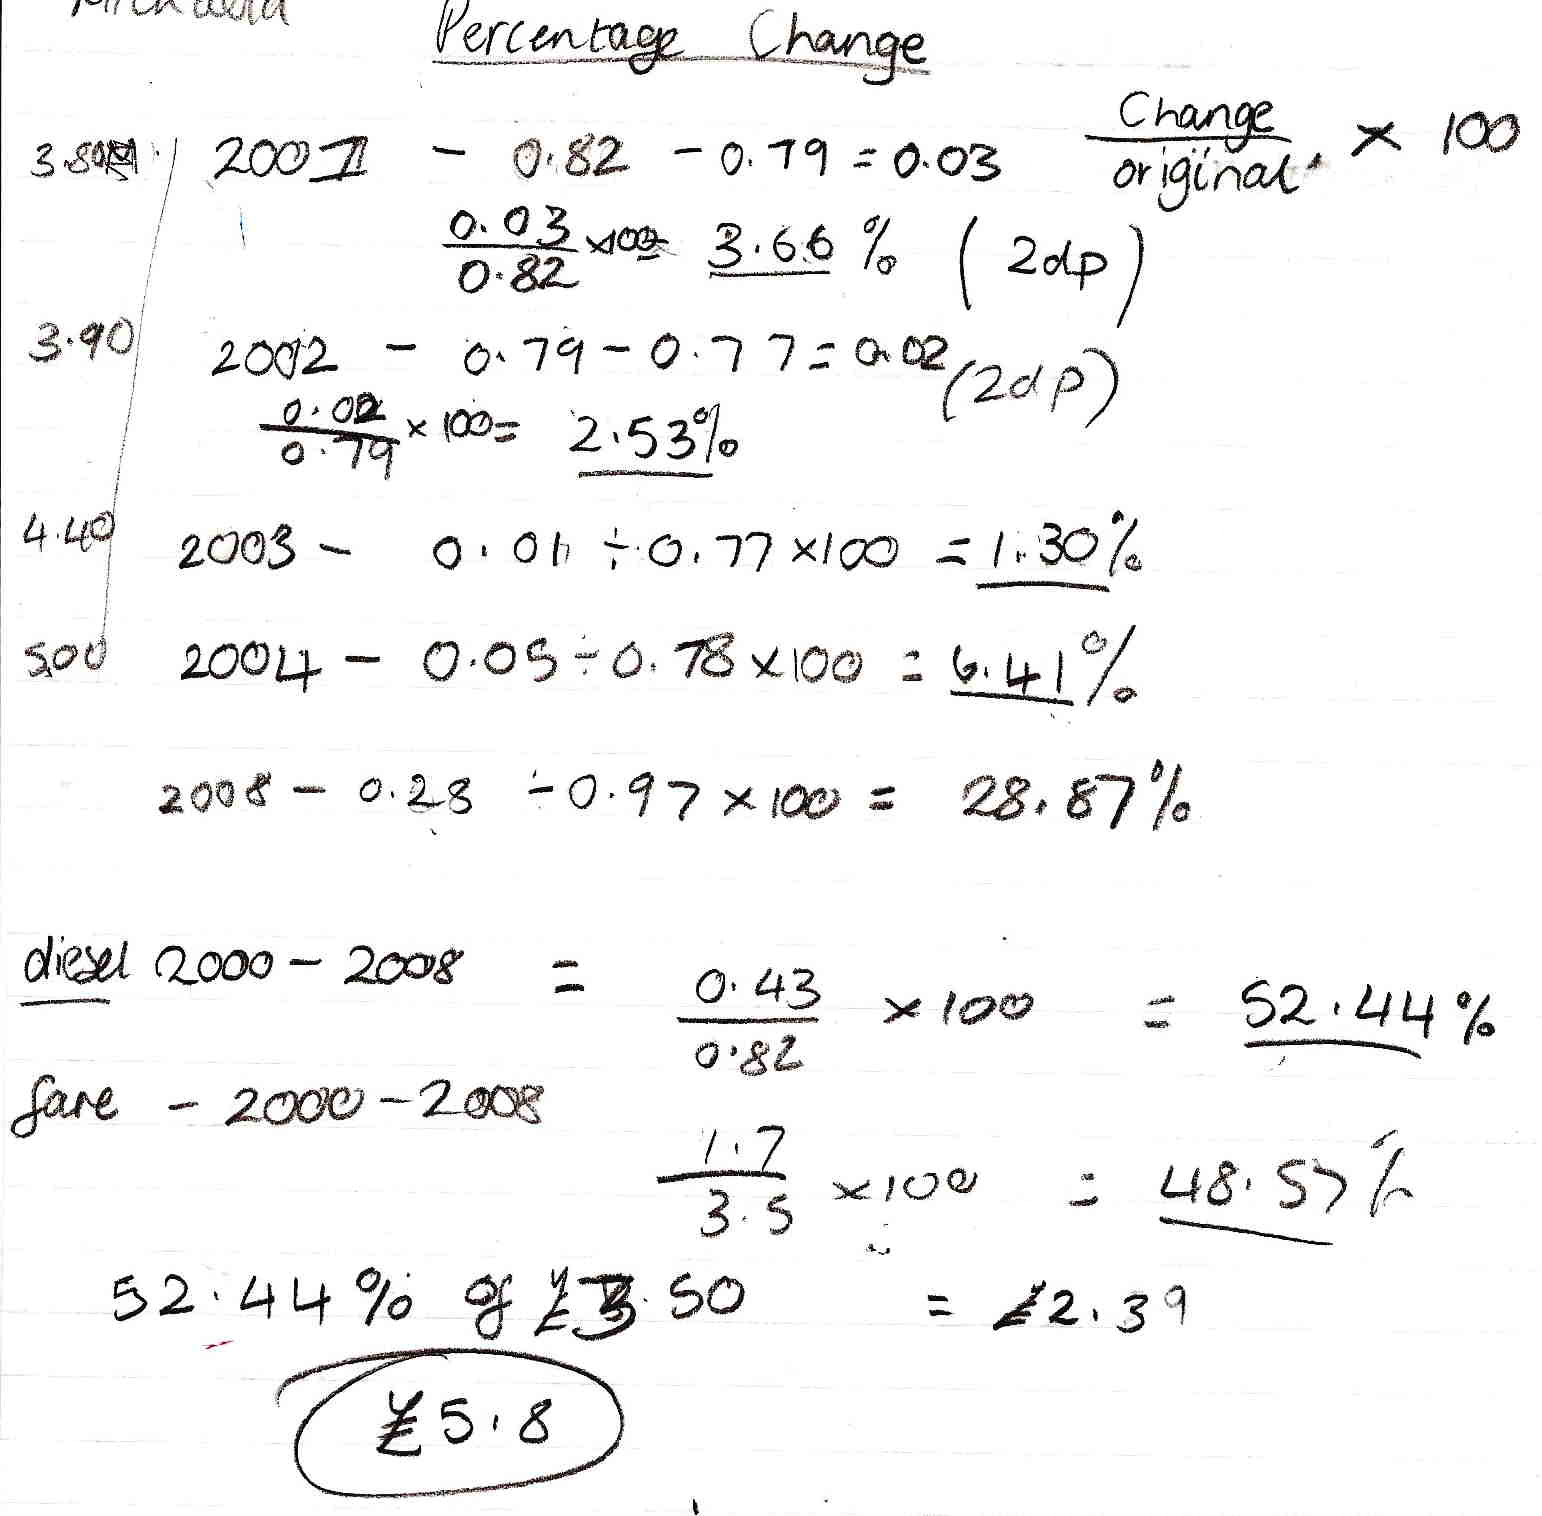 Percentage Change
Change
original × 100
3.80 2001 - 0.82 - 0.79 = 0.03
0.03
0.82 ×100= 3.66 % (2dp)
3.90 2002 - 0.79 - 0.77 = 0.02 (2dp)
0.02
0.79 × 100 = 2.53%
4.40 2003 - 0.01 ÷ 0.77 ×100 = 1.30%
5.00 2004 - 0.05 ÷ 0.78 ×100 = 6.41%
2008 - 0.28 ÷ 0.97 × 100 = 28.87%
diesel 2000 - 2008 = 0.43
0.82 × 100 = 52.44%
fare - 2000 - 2008
1.7
3.5 ×100 = 48.57%
52.44% of £3.50 = £2.39
£5.8